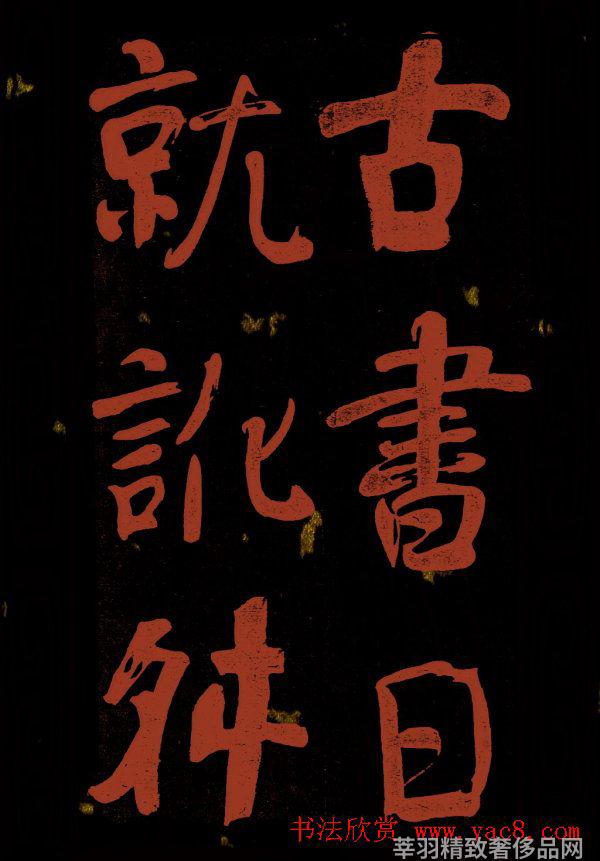 古書日
就訛舛
书法欣赏 www.yac8.com
莘羽精致奢侈品网